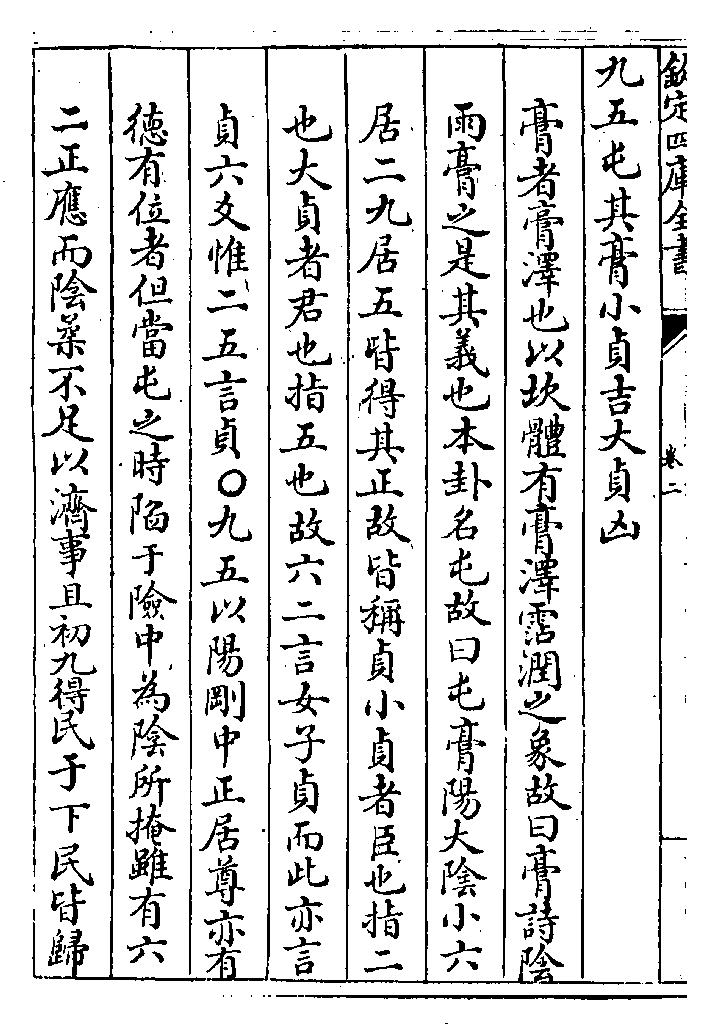 欽定四庫全書
卷二
九五屯其膏小貞吉大貞凶
膏者膏澤也以坎體有膏澤霑潤之象故曰膏詩陰
雨膏之是其義也本卦名屯故曰屯膏陽大陰小六
居二九居五皆得其正故皆稱貞小貞者臣也指二
也大貞者君也指五也故六二言女子貞而此亦言
貞六爻惟二五言貞○九五以陽剛中正居尊亦有
德有位者但當屯之時陷于險中為陰所掩雖有六
二正應而陰柔不足以濟事且初九得民于下民皆歸